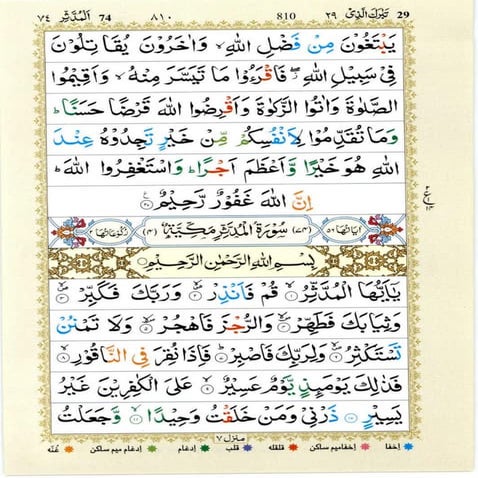 29 تَبٰرَكَ الَّذِىْ ٢٩ 810 ٨١٠ 74 اَلْمُدَّثِّر ٧٤
يَبْتَغُوْنَ مِنْ فَضْلِ اللّٰهِ ۙ وَاٰخَرُوْنَ يُقَاتِلُوْنَ
فِىْ سَبِيْلِ اللّٰهِ ۖ فَاقْرَءُوْا مَا تَيَسَّرَ مِنْهُ ۙ وَاَقِيْمُوا
الصَّلٰوةَ وَاٰتُوا الزَّكٰوةَ وَاَقْرِضُوا اللّٰهَ قَرْضًا حَسَنًا ؕ
وَمَا تُقَدِّمُوْا لِاَنْفُسِكُمْ مِّنْ خَيْرٍ تَجِدُوْهُ عِنْدَ
اللّٰهِ هُوَ خَيْرًا وَّاَعْظَمَ اَجْرًا ؕ وَاسْتَغْفِرُوا اللّٰهَ ؕ
اِنَّ اللّٰهَ غَفُوْرٌ رَّحِيْمٌ ٢٠
اٰيَاتُهَا ٥٦ (٧٤) سُوْرَةُ الْمُدَّثِّرِ مَكِّيَّةٌ (٤) رُكُوْعَاتُهَا ٢
بِسْمِ اللّٰهِ الرَّحْمٰنِ الرَّحِيْمِ
يٰۤاَيُّهَا الْمُدَّثِّرُ ١ قُمْ فَاَنْذِرْ ٢ وَرَبَّكَ فَكَبِّرْ ٣
وَثِيَابَكَ فَطَهِّرْ ٤ وَالرُّجْزَ فَاهْجُرْ ٥ وَلَا تَمْنُنْ
تَسْتَكْثِرُ ٦ وَلِرَبِّكَ فَاصْبِرْ ٧ فَاِذَا نُقِرَ فِى النَّاقُوْرِ ٨
فَذٰلِكَ يَوْمَئِذٍ يَّوْمٌ عَسِيْرٌ ٩ عَلَى الْكٰفِرِيْنَ غَيْرُ
يَسِيْرٍ ١٠ ذَرْنِىْ وَمَنْ خَلَقْتُ وَحِيْدًا ١١ وَّجَعَلْتُ
منزل ٧
اخفا اخفاميم ساكن قلقله قلب ادغام ادغام ميم ساكن غنّه